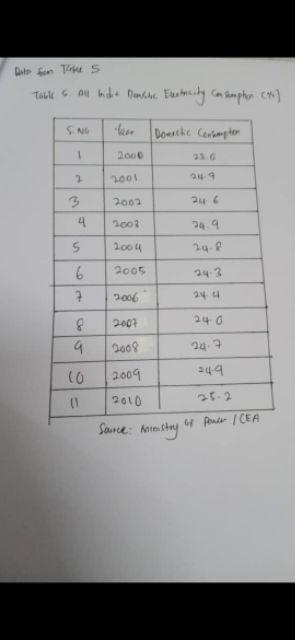 Data from Table 5
Table 5. All India Domestic Electricity Consumption (%)
S.No Year Domestic Consumption
1 2000
2 2001 24.9
3 2002 24.6
4 2003 24.9
5 2004 24.8
6 2005 24.3
7 2006 24.4
8 2007 24.0
9 2008 24.7
10 2009 24.9
11 2010 25.2
Source: Ministry of Power / CEA